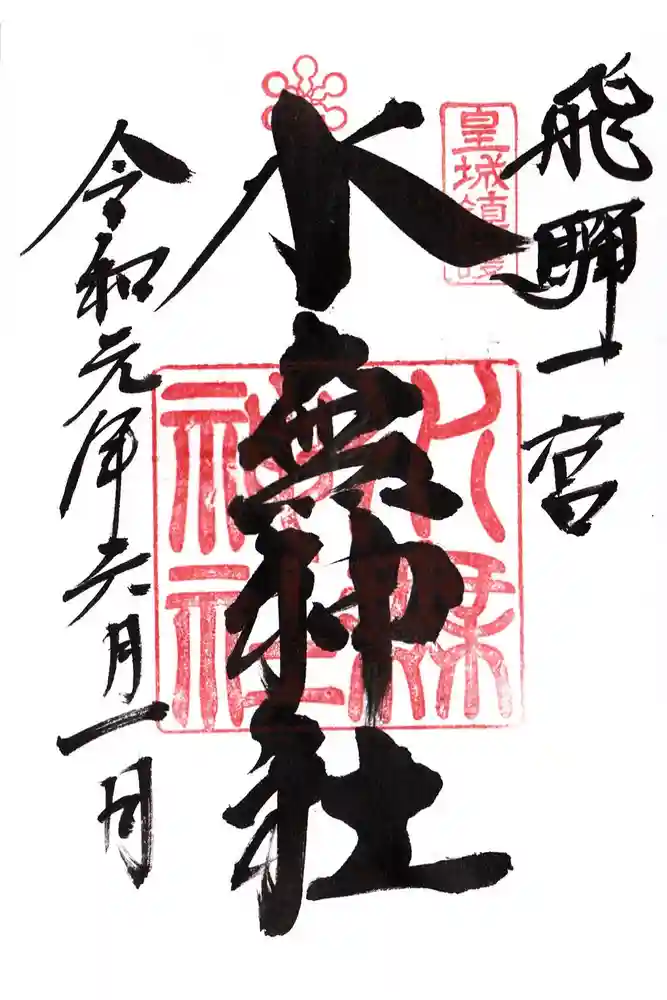 飛騨一宮
皇城鎮護
水無神社
令和元年六月一日